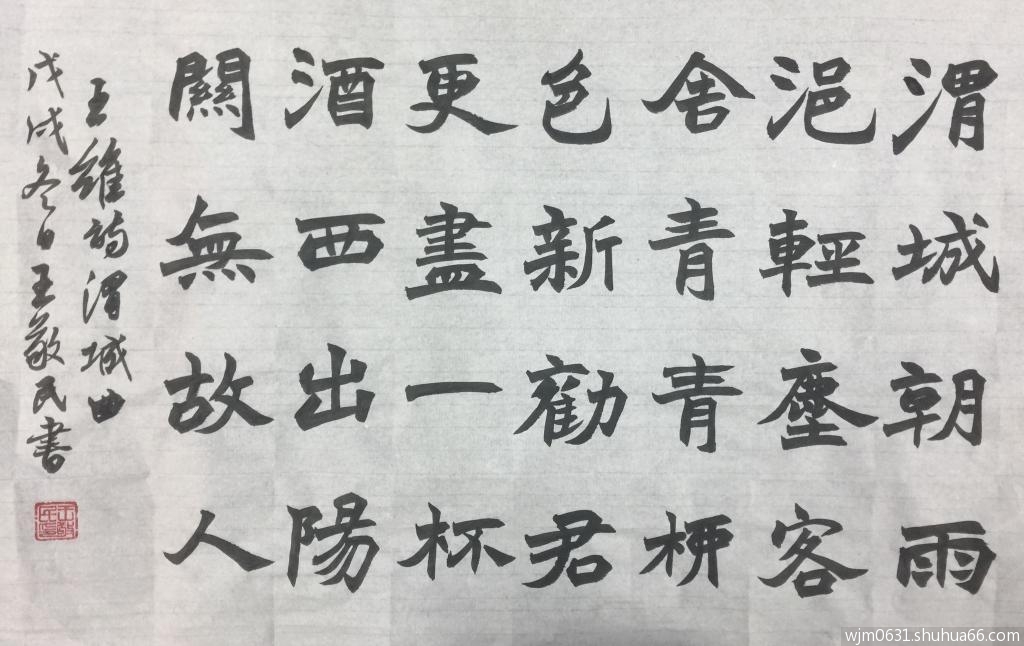 渭城朝雨
浥輕塵客
舍青青桺
色新勸君
更盡一杯
酒西出陽
關無故人
王維詩渭城曲
戊戌冬日王敬民書
wjm0631.shuhua66.com